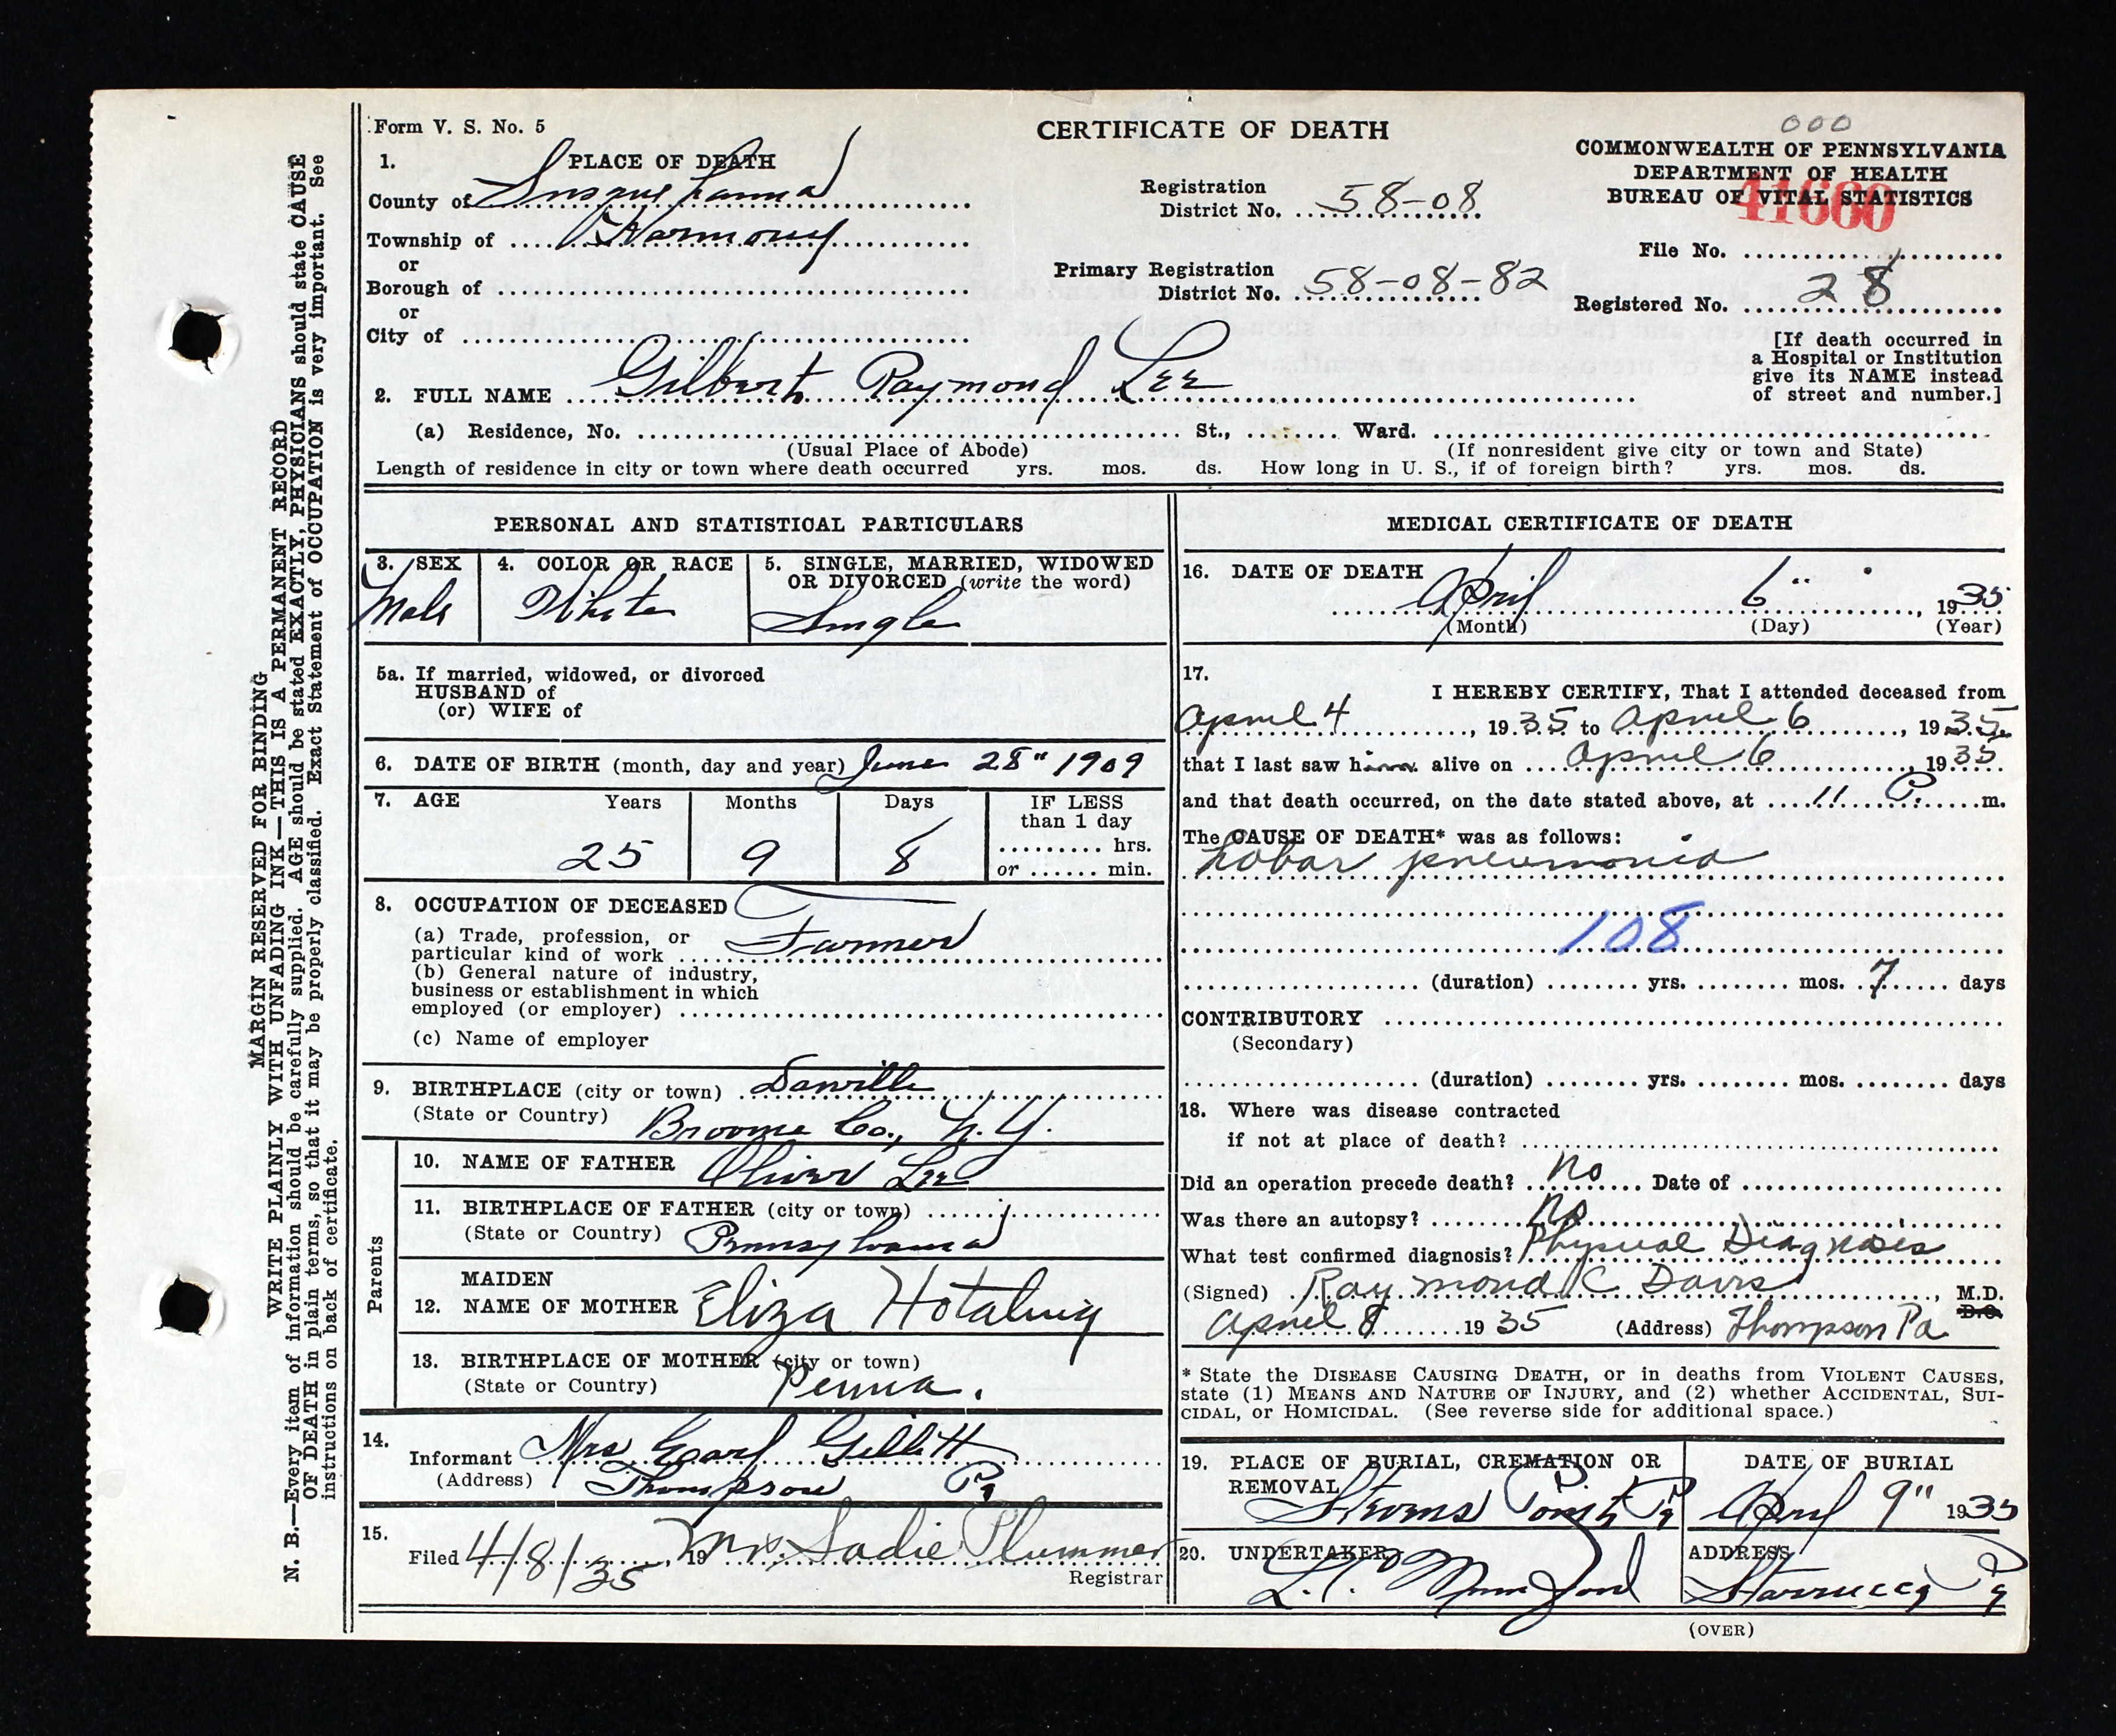 Form V. S. No. 5
CERTIFICATE OF DEATH
000
COMMONWEALTH OF PENNSYLVANIA
DEPARTMENT OF HEALTH
BUREAU OF VITAL STATISTICS
41660
1. PLACE OF DEATH
County of Susquehanna
Township of Harmony
or
Borough of
or
City of
Registration District No. 58-08
Primary Registration District No. 58-08-82
File No.
Registered No. 28
[If death occurred in
a Hospital or Institution
give its NAME instead
of street and number.]
2. FULL NAME Gilbert Raymond Lee
(a) Residence, No. St., Ward.
(Usual Place of Abode) (If nonresident give city or town and State)
Length of residence in city or town where death occurred yrs. mos. ds. How long in U. S., if of foreign birth? yrs. mos. ds.
PERSONAL AND STATISTICAL PARTICULARS
3. SEX
Male
4. COLOR OR RACE
White
5. SINGLE, MARRIED, WIDOWED
OR DIVORCED (write the word)
Single
5a. If married, widowed, or divorced
HUSBAND of
(or) WIFE of
6. DATE OF BIRTH (month, day and year) June 28" 1909
7. AGE Years Months Days IF LESS
than 1 day
hrs.
or min.
25 9 8
8. OCCUPATION OF DECEASED
(a) Trade, profession, or
particular kind of work Farmer
(b) General nature of industry,
business or establishment in which
employed (or employer)
(c) Name of employer
9. BIRTHPLACE (city or town) Danville
(State or Country) Broome Co., N.Y.
Parents
10. NAME OF FATHER Oliver Lee
11. BIRTHPLACE OF FATHER (city or town)
(State or Country) Pennsylvania
MAIDEN
12. NAME OF MOTHER Eliza Hotaling
13. BIRTHPLACE OF MOTHER (city or town)
(State or Country) Penna.
14. Informant Mrs Earl Gillitt
(Address) Thompson Pa
15. Filed 4/8/35, 19 Mrs Sadie Plummer
Registrar
MEDICAL CERTIFICATE OF DEATH
16. DATE OF DEATH
April 6", 1935
(Month) (Day) (Year)
17. I HEREBY CERTIFY, That I attended deceased from
April 4, 1935 to April 6, 1935.
that I last saw him alive on April 6, 1935
and that death occurred, on the date stated above, at 11 P. m.
The CAUSE OF DEATH* was as follows:
Lobar pneumonia
108
(duration) yrs. mos. 7 days
CONTRIBUTORY
(Secondary)
(duration) yrs. mos. days
18. Where was disease contracted
if not at place of death?
Did an operation precede death? No Date of
Was there an autopsy? No
What test confirmed diagnosis? Physical Diagnosis
(Signed) Raymond C Davis, M.D.
D.O.
April 8 1935 (Address) Thompson Pa
* State the DISEASE CAUSING DEATH, or in deaths from VIOLENT CAUSES,
state (1) MEANS AND NATURE OF INJURY, and (2) whether ACCIDENTAL, SUI-
CIDAL, or HOMICIDAL. (See reverse side for additional space.)
19. PLACE OF BURIAL, CREMATION OR
REMOVAL
Stevens Point Pa
DATE OF BURIAL
April 9" 1935
20. UNDERTAKER
L.T. Mumford
ADDRESS
Starrucca Pa
(OVER)
MARGIN RESERVED FOR BINDING
WRITE PLAINLY WITH UNFADING INK—THIS IS A PERMANENT RECORD
N. B.—Every item of information should be carefully supplied. AGE should be stated EXACTLY, PHYSICIANS should state CAUSE
OF DEATH in plain terms, so that it may be properly classified. Exact Statement of OCCUPATION is very important. See
instructions on back of certificate.